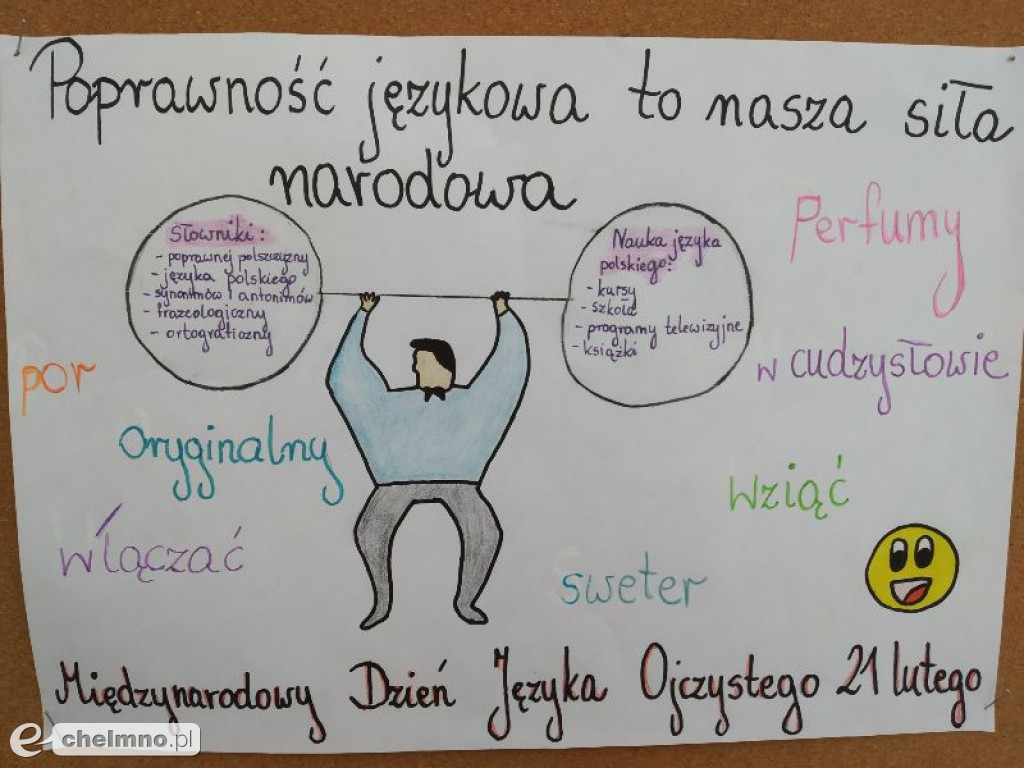 Poprawność językowa to nasza siła
narodowa
Słowniki:
- poprawnej polszczyzny
- języka polskiego
- synonimów i antonimów
- frazeologiczny
- ortograficzny
Nauka języka
polskiego:
- kursy
- szkoła
- programy telewizyjne
- książki
Perfumy
w cudzysłowie
por
oryginalny
wziąć
włączać
sweter
Międzynarodowy Dzień Języka Ojczystego 21 lutego
e chelmno.pl